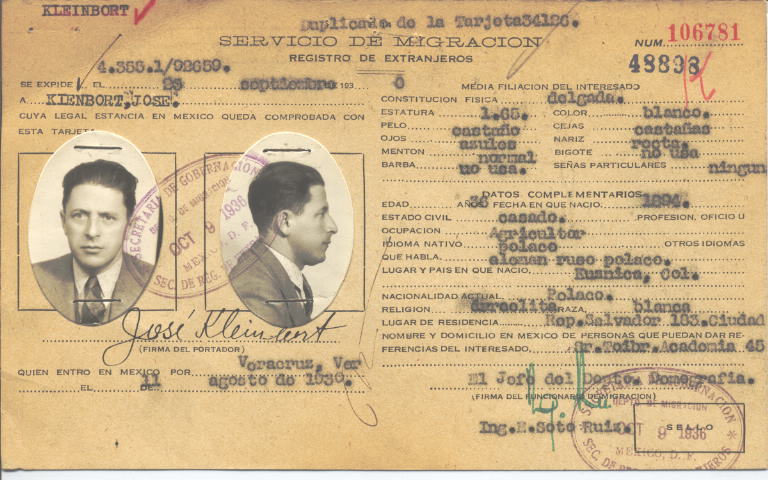 KLEINBORT
Duplicado de la Tarjeta34126.
SERVICIO DE MIGRACION
REGISTRO DE EXTRANJEROS
NUM. 106781
48898
4.355.1/92659.
SE EXPIDE EL 23 septiembre 193 6
A KIENBORT, JOSE.
CUYA LEGAL ESTANCIA EN MEXICO QUEDA COMPROBADA CON
ESTA TARJETA
José Kleinbort
(FIRMA DEL PORTADOR)
QUIEN ENTRO EN MEXICO POR Veracruz, Ver
EL 11 DE agosto de 1930.
MEDIA FILIACION DEL INTERESADO
CONSTITUCION FISICA delgada.
ESTATURA 1.65. COLOR blanco.
PELO castaño CEJAS castañas
OJOS azules NARIZ recta.
MENTON normal BIGOTE no usa
BARBA no usa. SEÑAS PARTICULARES ningun
DATOS COMPLEMENTARIOS
EDAD 36 AÑOS FECHA EN QUE NACIO. 1894.
ESTADO CIVIL casado. PROFESION, OFICIO U
OCUPACION Agricultor
IDIOMA NATIVO polaco OTROS IDIOMAS
QUE HABLA. aleman ruso polaco.
LUGAR Y PAIS EN QUE NACIO. Kusnica, Col.
NACIONALIDAD ACTUAL Polaco.
RELIGION israelita RAZA, blanca
LUGAR DE RESIDENCIA Rep.Salvador 183.Ciudad
NOMBRE Y DOMICILIO EN MEXICO DE PERSONAS QUE PUEDAN DAR RE-
FERENCIAS DEL INTERESADO. Sr.Toibr.Academia 45
El Jefe del Depto. Demografia.
(FIRMA DEL FUNCIONARIO DE MIGRACION)
Ing.E.Soto Ruiz.
SELLO
SECRETARIA DE GOBERNACION
OCT 9 1936
MEXICO, D. F.
SEC. DE REG. DE
GOBERNACION
DEPTO. DE MIGRACION
OCT 9 1936
MEXICO, D. F.